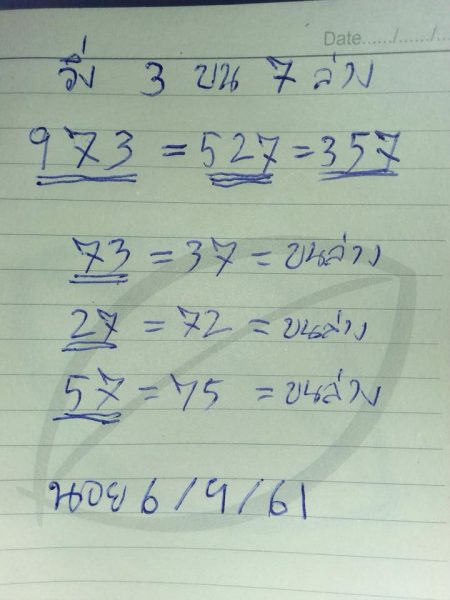 Date....../....../......
วิ่ง 3 บน 7 ล่าง
973 = 527 = 357
73 = 37 = บนล่าง
27 = 72 = บนล่าง
57 = 75 = บนล่าง
หนอย 6/9/61